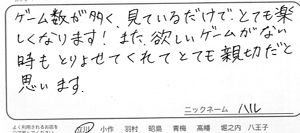 ゲーム数が多く、見ているだけで、とても楽
しくなります！また、欲しいゲームがない
時もとりよせてくれてとても親切だと
思います。
ニックネーム ハル
よく利用されるお店を
立川 小作 羽村 昭島 青梅 高幡 堀之内 八王子